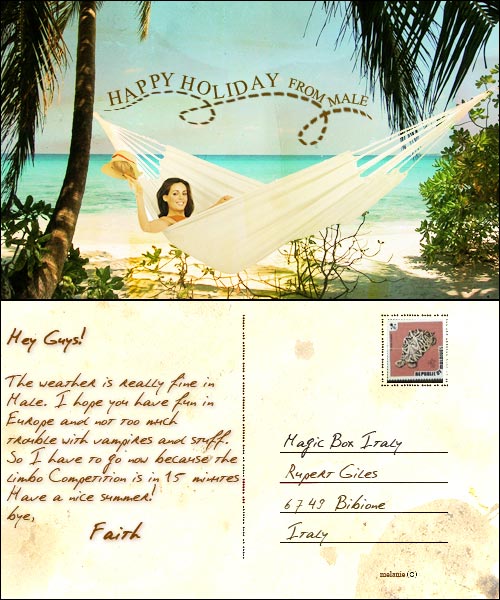 HAPPY HOLIDAY FROM MALE
Hey Guys!
The weather is really fine in
Male. I hope you have fun in
Europe and not too much
trouble with vampires and stuff.
So I have to go now because the
Limbo Competition is in 15 minutes
Have a nice summer!
bye,
Faith
REPUBLIC
Magic Box Italy
Rupert Giles
6749 Bibione
Italy
melanie (C)